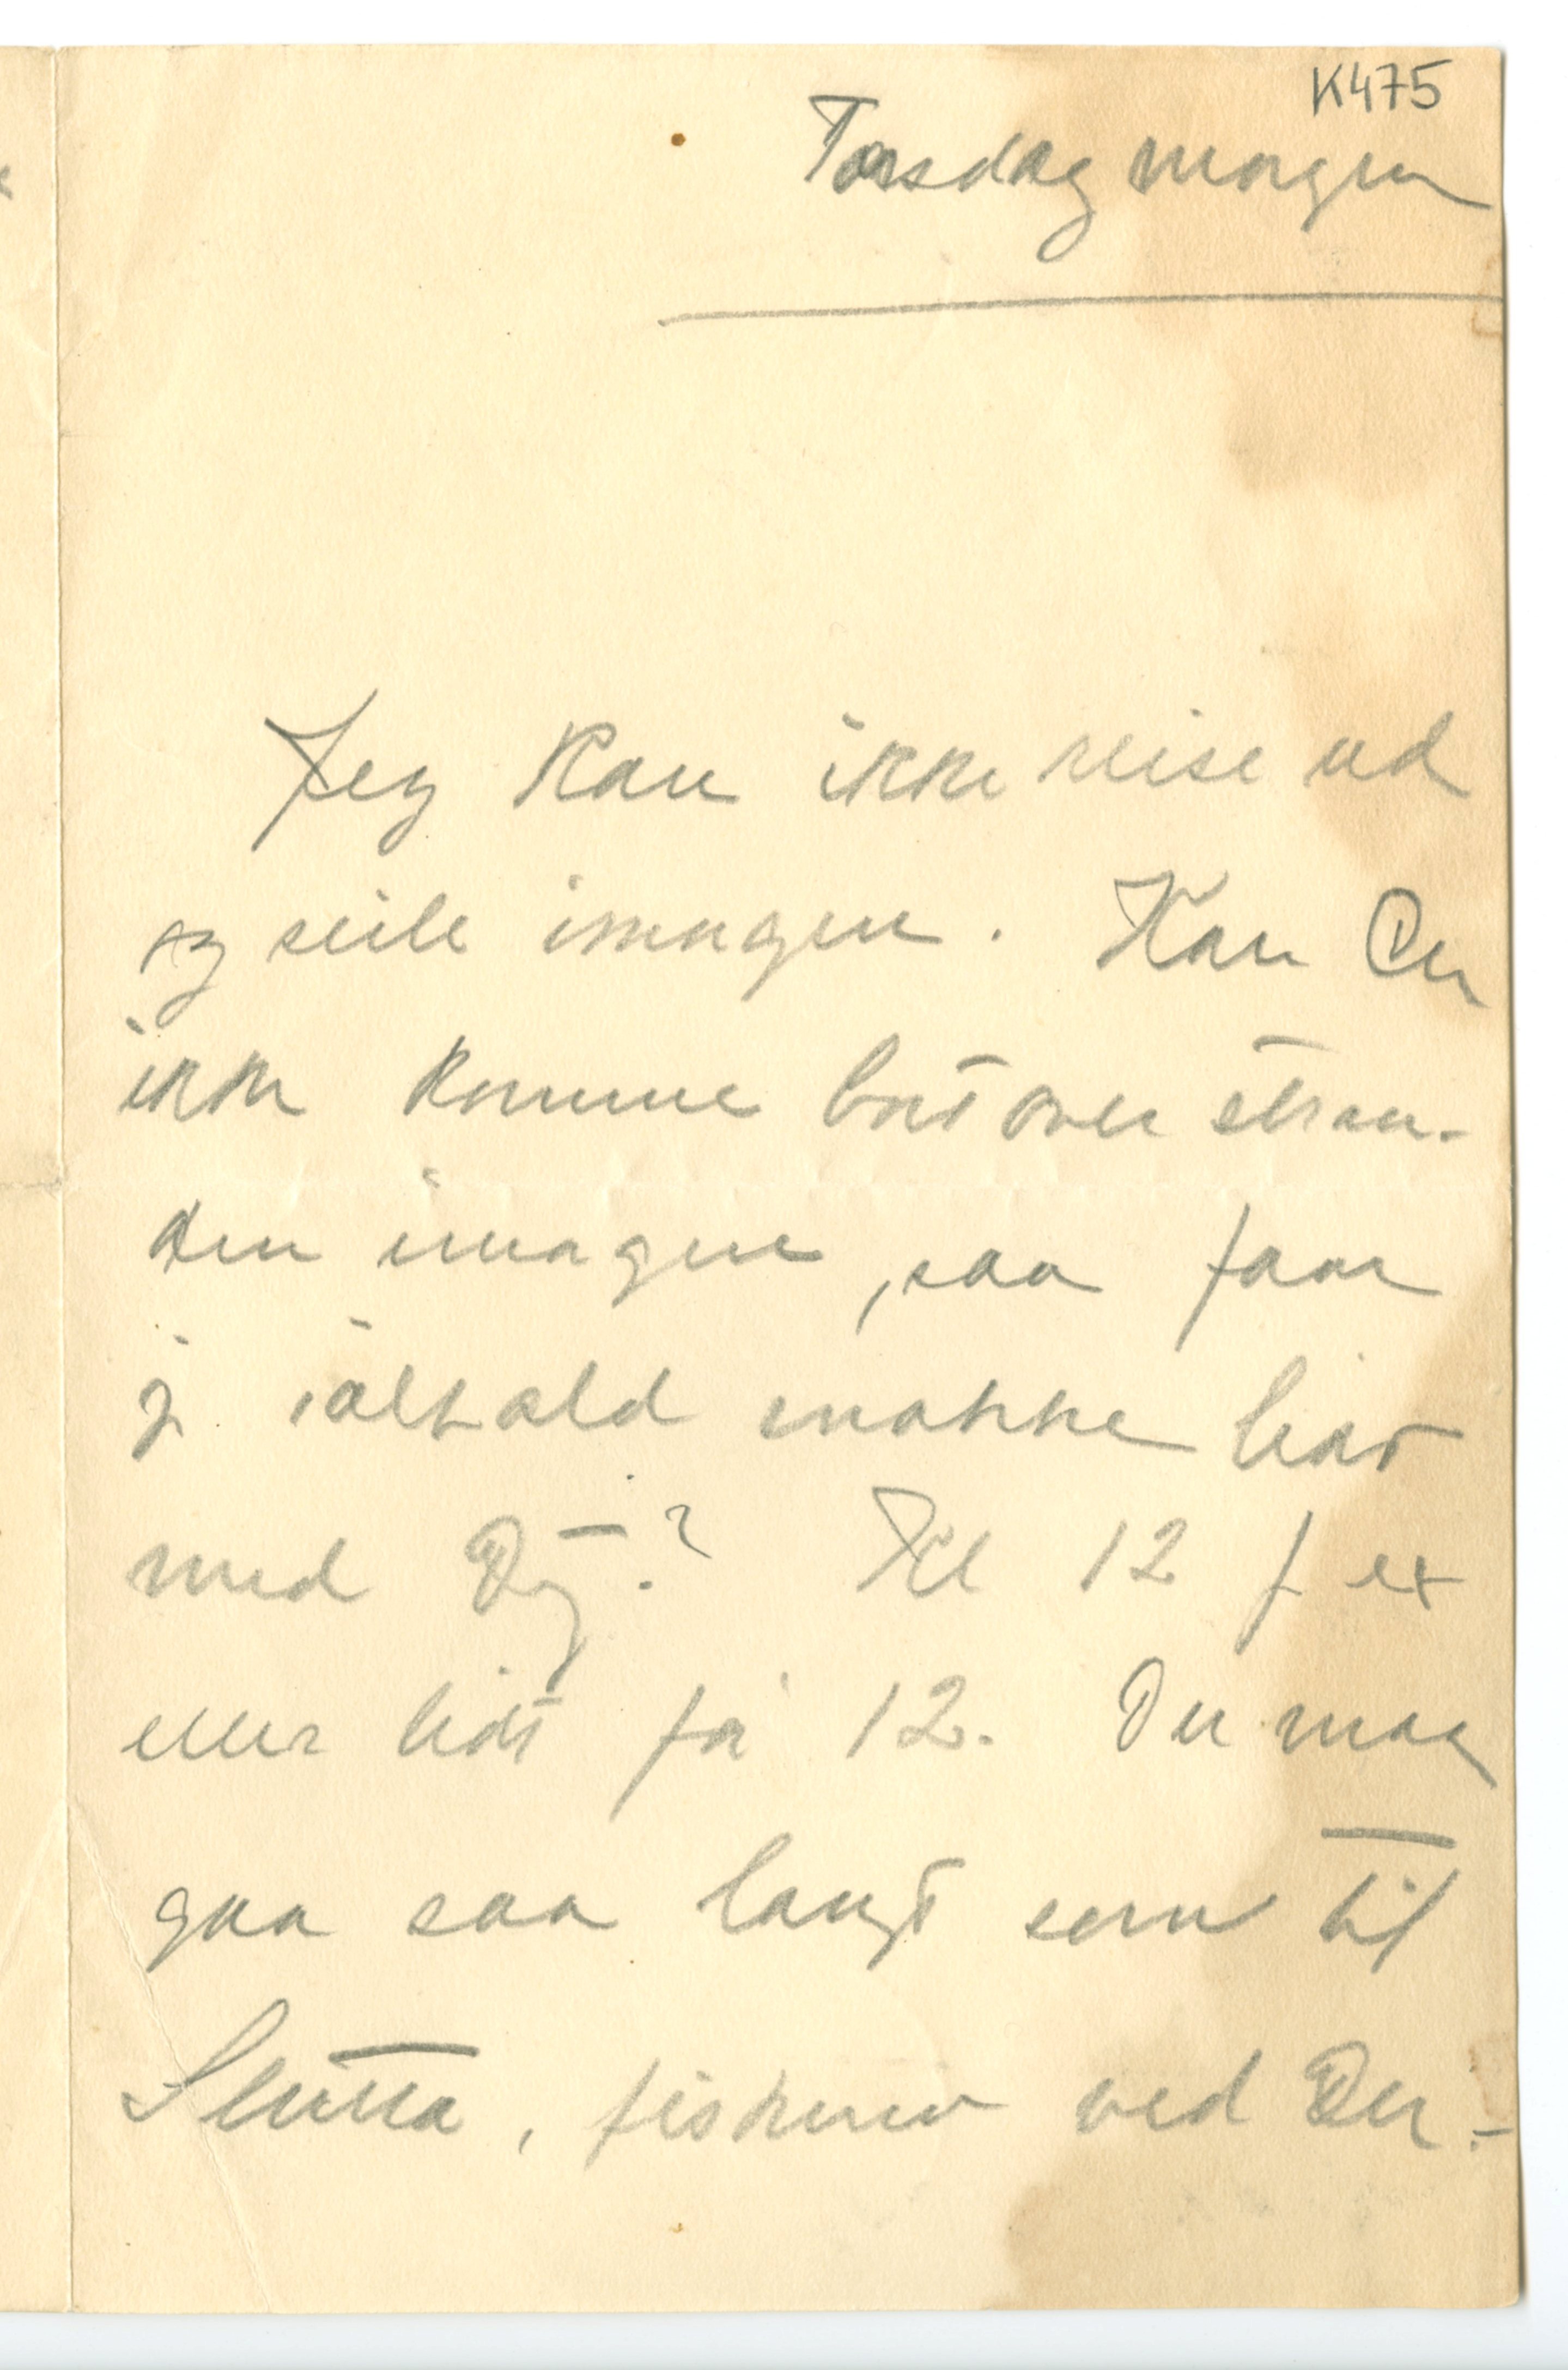 K475
Torsdag morgen
Jeg kan ikke reise ud
og seile imorgen. Kan Du
ikke komme bortover stran-
den imorgen, saa faar
j. ialfald snakke lidt
med Dig? Kl 12 f ex
eller lidt før 12. Du maa
gaa saa langt som til
fiskeren ved